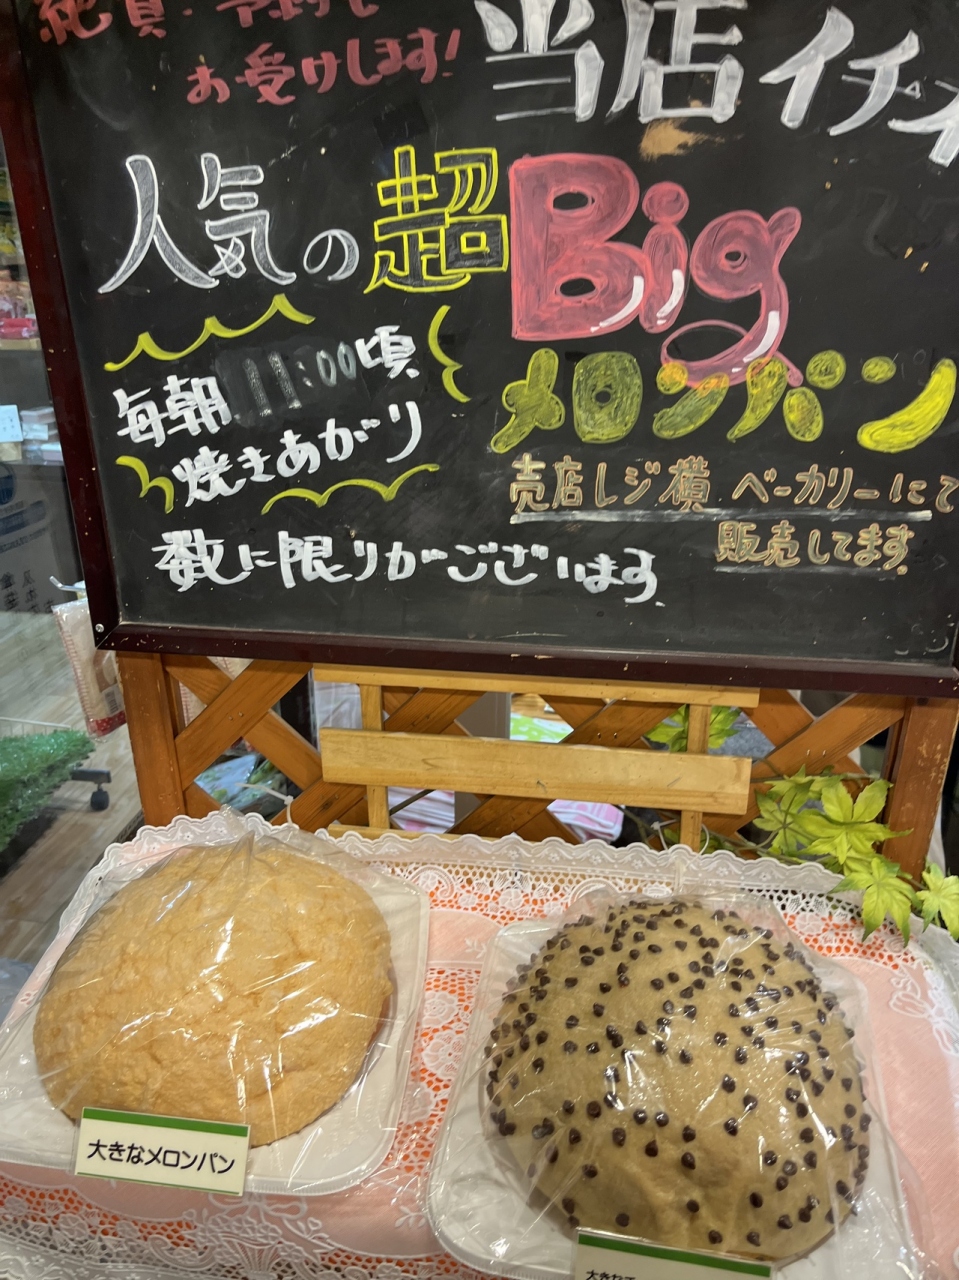 お受けします!
当店イチオ
人気の超Big
メロンパン
毎朝11:00頃
焼きあがり
売店レジ横 ベーカリーにて
販売してます。
数に限りがございます。
大きなメロンパン
大きな